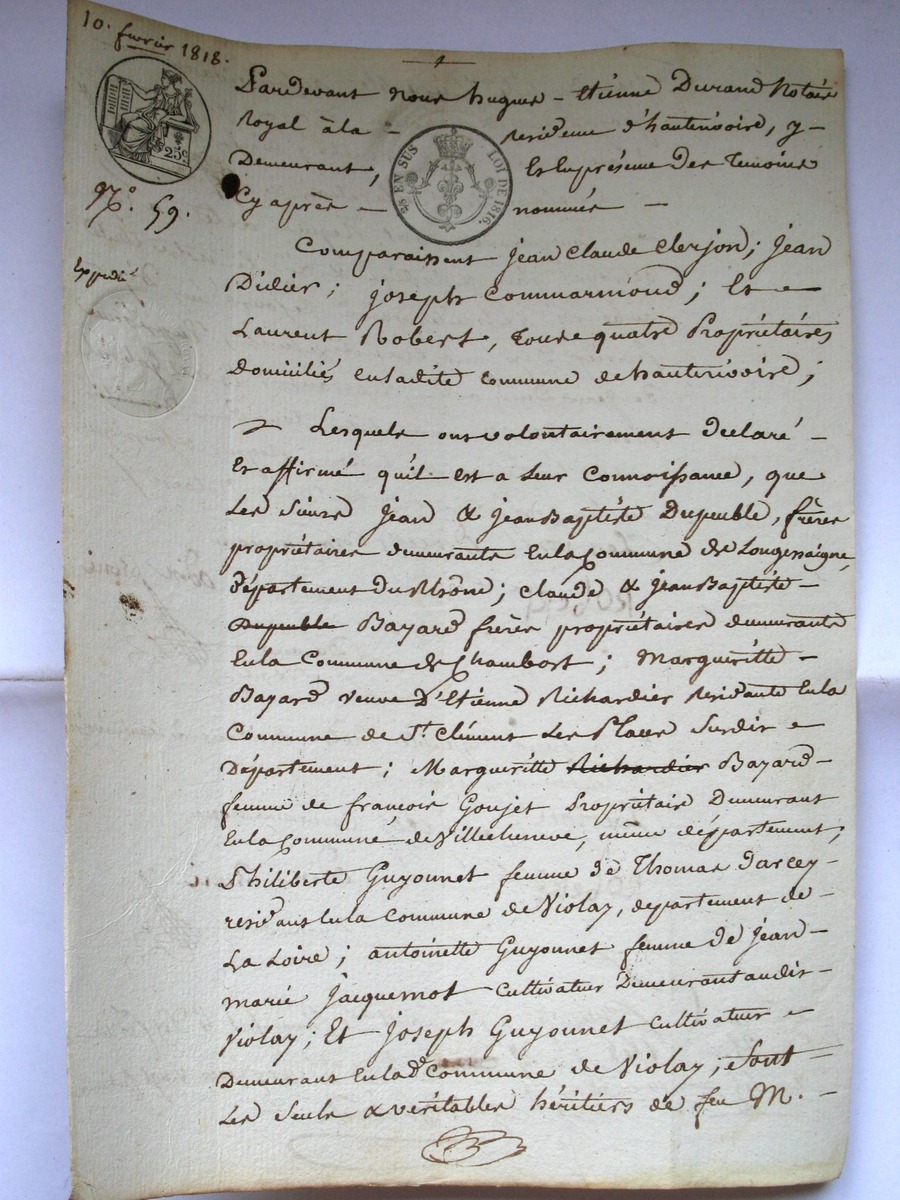 10. fevrier 1818.
25c
Pardevant nous hugues - Etienne Durand Notaire
royal à la - residence d'hauterivoire, y -
Demeurant, Et En présence des Temoins
Cy après - nommés -
¼ EN SUS LOI DE 1816.
N.° 59.
Expedié
Comparaissent Jean Claude Clerjon; Jean
Didier; Joseph Commarmond; Et -
Laurent Robert, tous quatre Propriétaires
domiciliés en ladite commune de hauterivoire;
Lesquels ont volontairement declaré -
Et affirmé qu'il est a Leur Connoissance, que
Les Sieurs Jean & Jean Baptiste Dupeuble, frères
propriétaires demeurants En la Commune de Longessaigne,
Département du Rhône; Claude & Jean Baptiste -
Dupeuble Bazard frères propriétaires demeurants
En la Commune de Chambost; Margueritte -
Bazard veuve D'Etienne Richardier residante En la
Commune de St. Clément Les Places Susdit -
Département; Marguéritte Richardier Bazard -
femme de françois Goujet Propriétair Demeurant
En la Commune de Villecheneve, même département;
Philiberte Guyonnet femme de Thomas Darcey -
résidants En la Commune de Violay, département de -
La Loire; antoinette Guyonnet femme de Jean -
marie Jacquemot Cultivateur Demeurant audit -
Violay; Et Joseph Guyonnet Cultivateur -
Demeurant En lad.e Commune de Violay; Sont -
Les Seuls & véritables héritiers de feu M. -